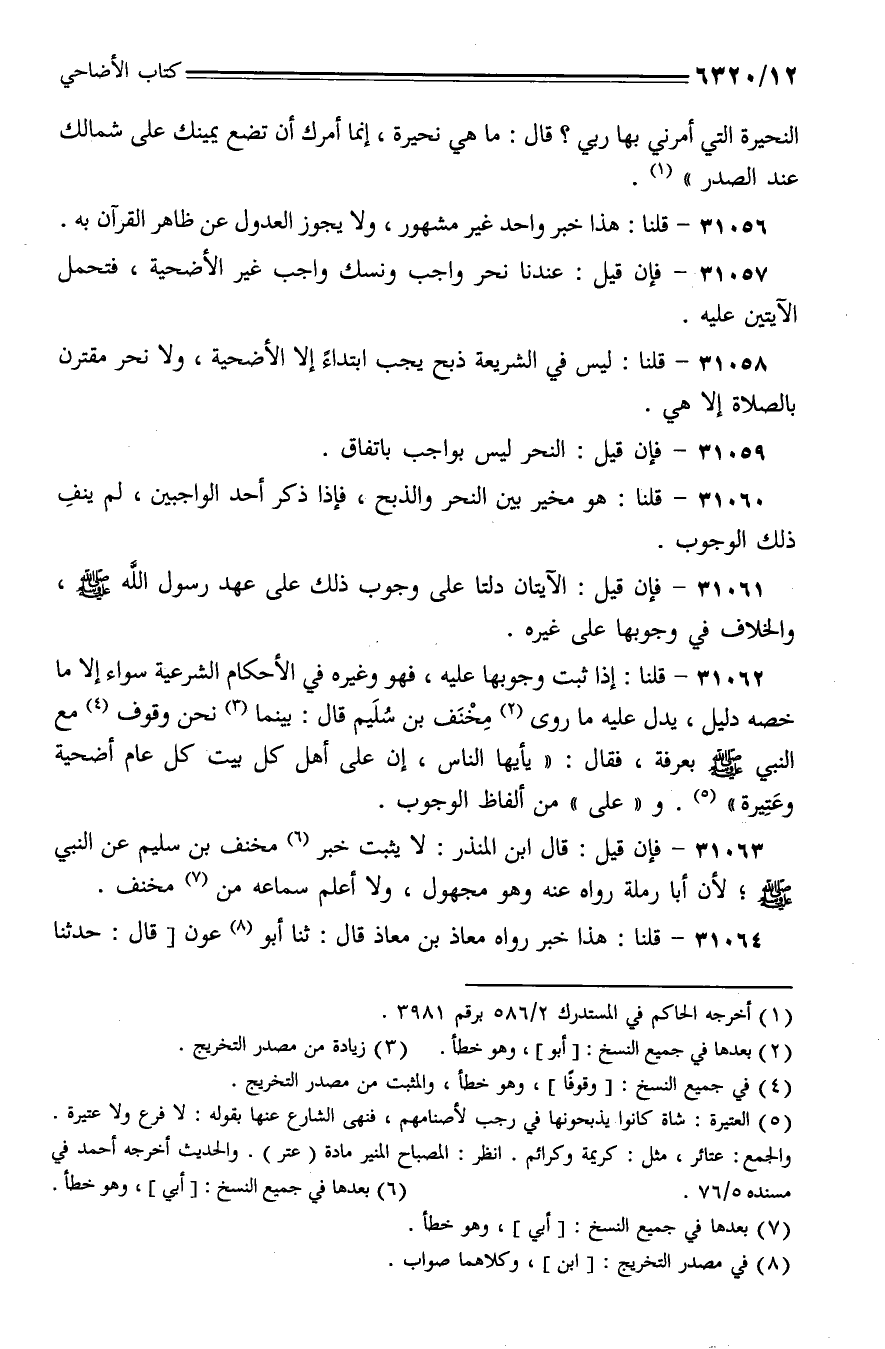 ٦٣٢٠/١٢ كتاب الأضاحي
النحيرة التي أمرني بها ربي ؟ قال : ما هي نحيرة ، إنما أمرك أن تضع يمينك على شمالك
عند الصدر » (١) .
٣١٠٥٦ – قلنا : هذا خبر واحد غير مشهور ، ولا يجوز العدول عن ظاهر القرآن به .
٣١٠٥٧ – فإن قيل : عندنا نحر واجب ونسك واجب غير الأضحية ، فتحمل
الآيتين عليه .
٣١٠٥٨ – قلنا : ليس في الشريعة ذبح يجب ابتداءً إلا الأضحية ، ولا نحر مقترن
بالصلاة إلا هي .
٣١٠٥٩ – فإن قيل : النحر ليس بواجب باتفاق .
٣١٠٦٠ – قلنا : هو مخير بين النحر والذبح ، فإذا ذكر أحد الواجبين ، لم ينفِ
ذلك الوجوب .
٣١٠٦١ – فإن قيل : الآيتان دلتا على وجوب ذلك على عهد رسول اللَّه ﷺ ،
والخلاف في وجوبها على غيره .
٣١٠٦٢ – قلنا : إذا ثبت وجوبها عليه ، فهو وغيره في الأحكام الشرعية سواء إلا ما
خصه دليل ، يدل عليه ما روى (٢) مِخْنَف بن سُلَيم قال : بينما (٣) نحن وقوف (٤) مع
النبي ﷺ بعرفة ، فقال : « يأيها الناس ، إن على أهل كل بيت كل عام أضحية
وعَتِيرة » (٥) . و « على » من ألفاظ الوجوب .
٣١٠٦٣ – فإن قيل : قال ابن المنذر : لا يثبت خبر (٦) مخنف بن سليم عن النبي
ﷺ ؛ لأن أبا رملة رواه عنه وهو مجهول ، ولا أعلم سماعه من (٧) مخنف .
٣١٠٦٤ – قلنا : هذا خبر رواه معاذ بن معاذ قال : ثنا أبو (٨) عون [ قال : حدثنا
(١) أخرجه الحاكم في المستدرك ٥٨٦/٢ برقم ٣٩٨١ .
(٢) بعدها في جميع النسخ : [ أبو ] ، وهو خطأ . (٣) زيادة من مصدر التخريج .
(٤) في جميع النسخ : [ وقوفًا ] ، وهو خطأ ، والمثبت من مصدر التخريج .
(٥) العتيرة : شاة كانوا يذبحونها في رجب لأصنامهم ، فنهى الشارع عنها بقوله : لا فرع ولا عتيرة .
والجمع : عتائر ، مثل : كريمة وكرائم . انظر : المصباح المنير مادة ( عتر ) . والحديث أخرجه أحمد في
مسنده ٧٦/٥ . (٦) بعدها في جميع النسخ : [ أبي ] ، وهو خطأ .
(٧) بعدها في جميع النسخ : [ أبي ] ، وهو خطأ .
(٨) في مصدر التخريج : [ ابن ] ، وكلاهما صواب .